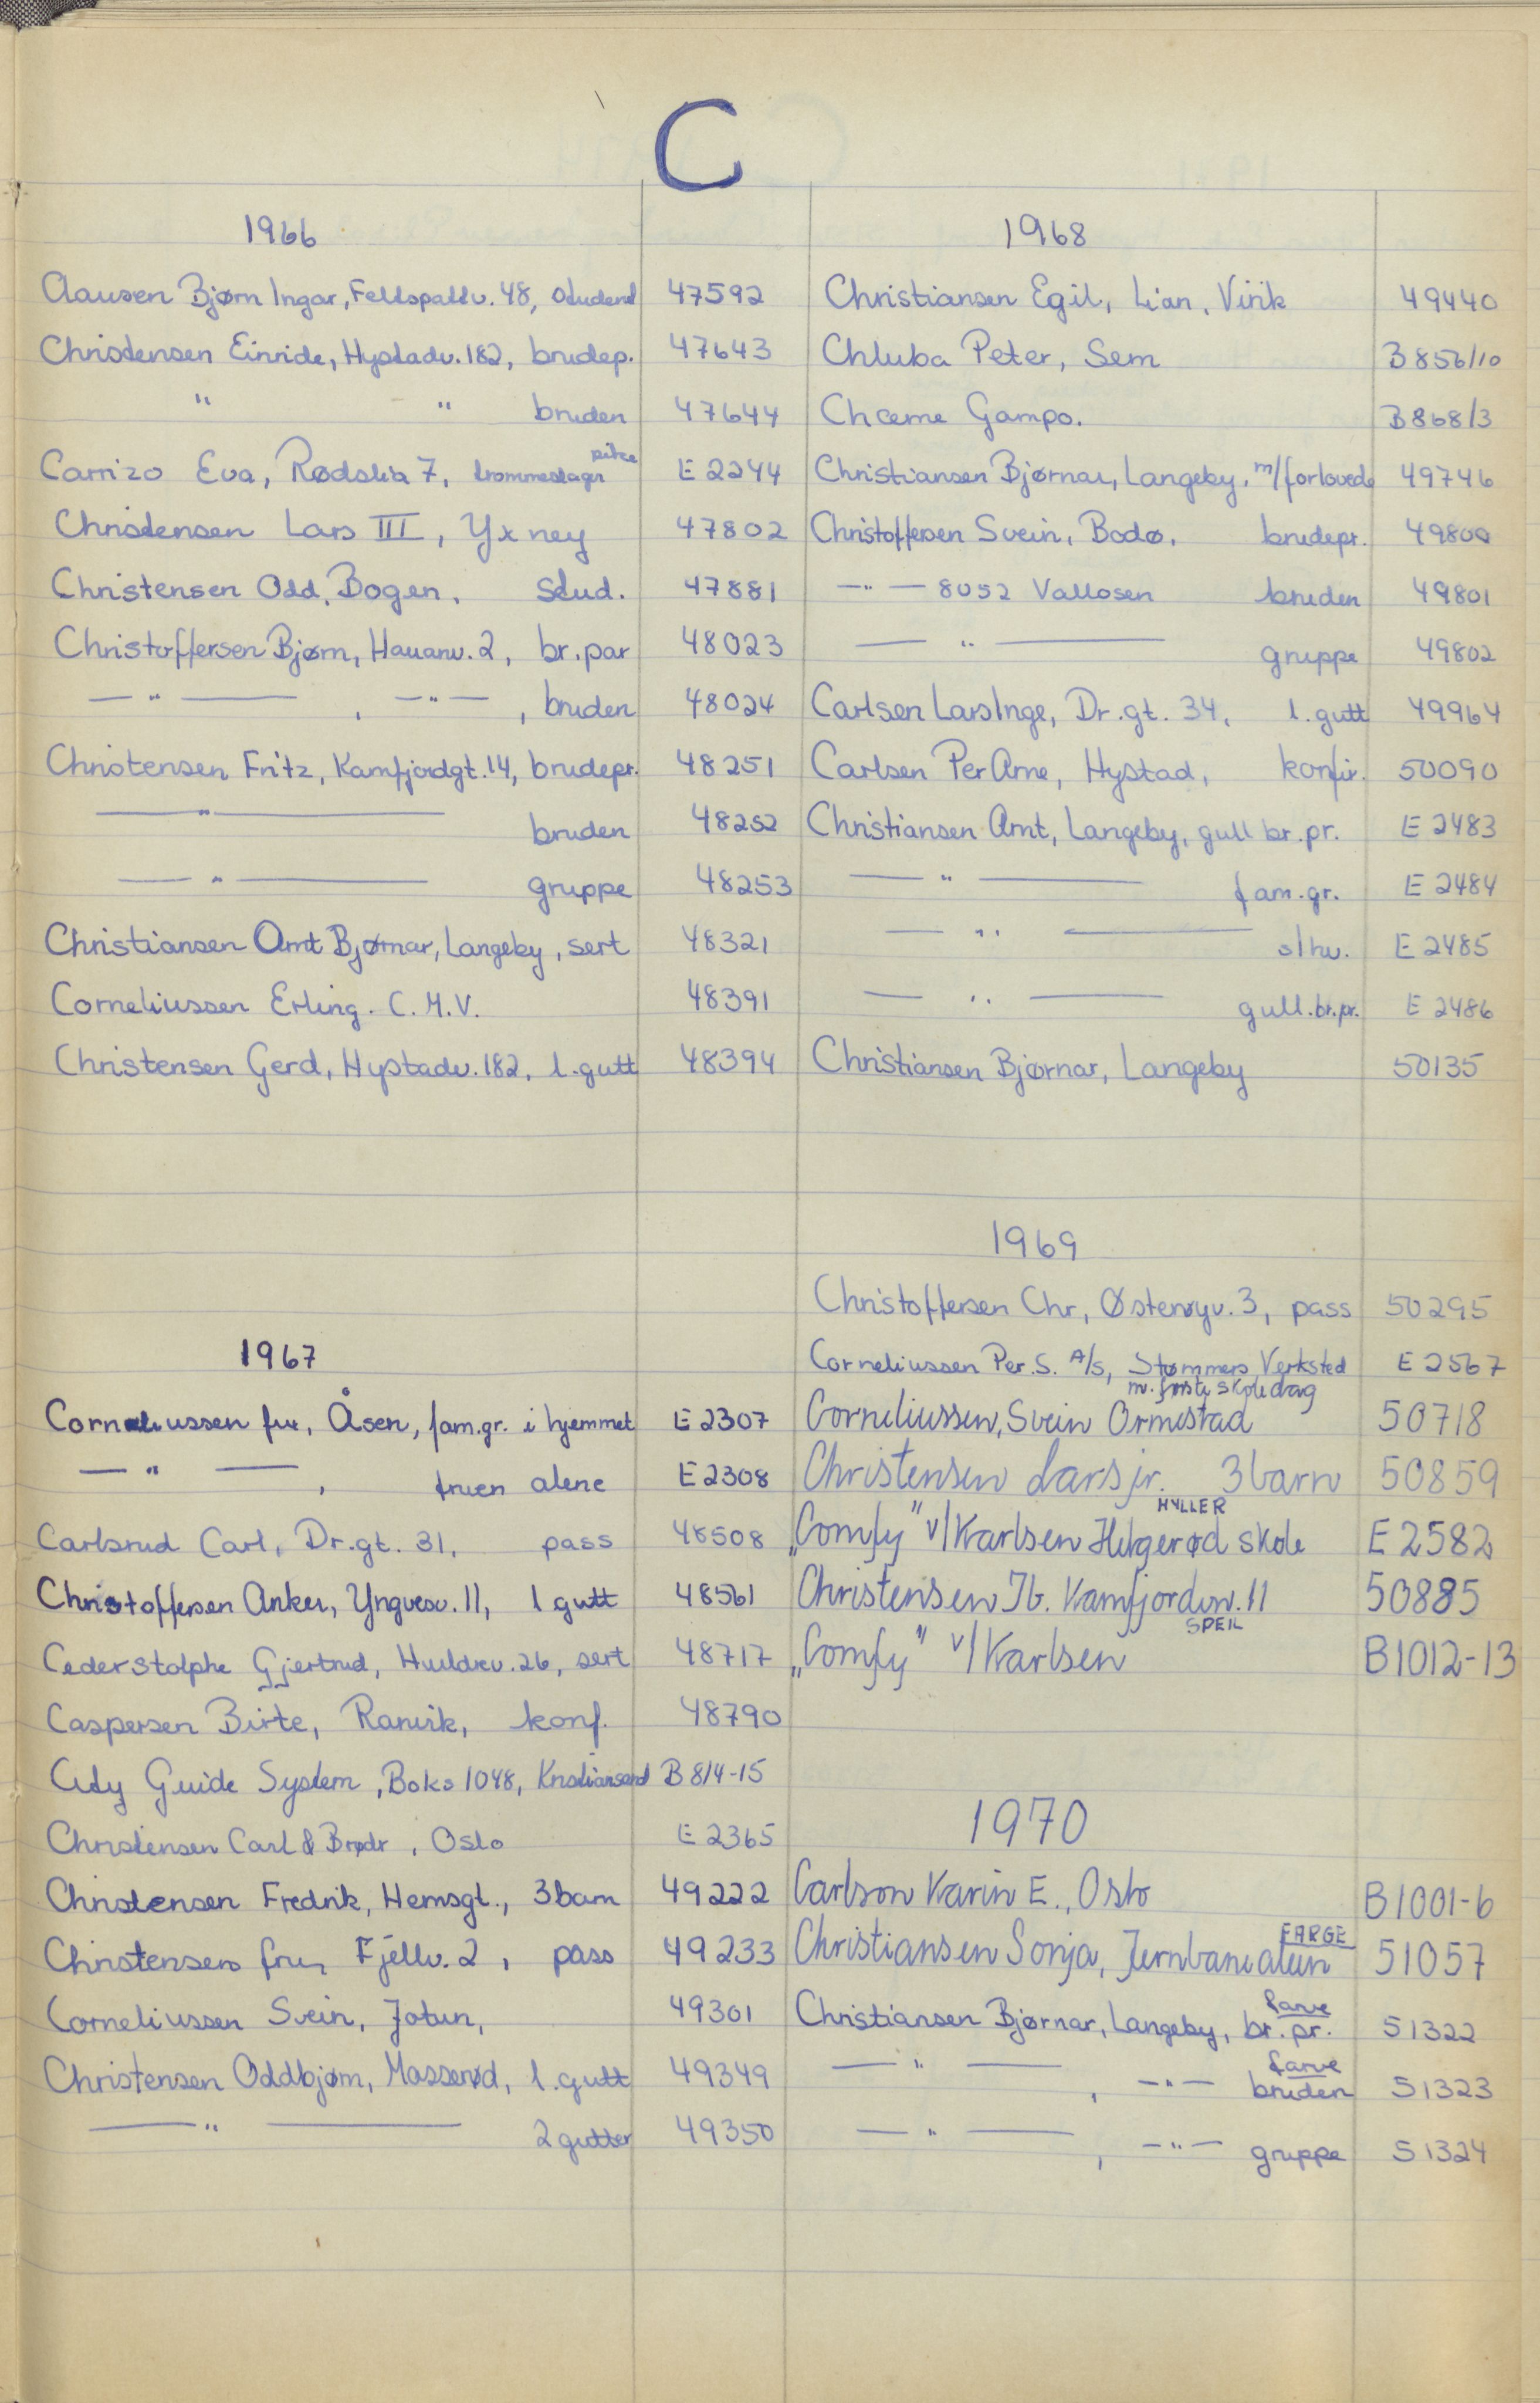 C
1966
Clausen Bjørn Ingar, Feltspattv. 48, student 47592
Christensen Einride, Hystadv. 182, brudep. 47643
" " bruden 47644
Carrizo Eva, Rødslia 7, trommeslager pike E 2244
Christensen Lars III, Yxney 47802
Christensen Odd, Bogen, stud. 47881
Christoffersen Bjørn, Hauanv. 2, br.par 48023
—"— , —"— , bruden 48024
Christensen Fritz, Kamfjordgt. 14, brudepr. 48251
—"— bruden 48252
—"— gruppe 48253
Christiansen Arnt Bjørnar, Langeby, sert 48321
Corneliussen Erling. C.M.V. 48391
Christensen Gerd, Hystadv. 182, l.gutt 48394
1967
Corneliussen fru, Åsen, fam.gr. i hjemmet E 2307
—"— , fruen alene E 2308
Carlsrud Carl, Dr.gt. 31, pass 48508
Christoffersen Anker, Yngvesv. 11, l gutt 48561
Cederstolphe Gjertrud, Huldrev. 26, sert 48717
Caspersen Birte, Ranvik, konf. 48790
City Guide System, Boks 1048, Kristiansand B 814-15
Christensen Carl & Brødr, Oslo E 2365
Christensen Fredrik, Hemsgt., 3 barn 49222
Christensen fru, Fjellv. 2, pass 49233
Corneliussen Svein, Jotun, 49301
Christensen Oddbjørn, Massерød, l.gutt 49349
—"— 2 gutter 49350
1968
Christiansen Egil, Lian, Virik 49440
Chluba Peter, Sem B 856/10
Choeme Gampo. B 868/3
Christiansen Bjørnar, Langeby, m/forlovede 49746
Christoffersen Svein, Bodø, brudepr. 49800
—"— 8052 Vallosen bruden 49801
—"— gruppe 49802
Carlsen Lars Inge, Dr.gt. 34, l.gutt 49964
Carlsen Per Arne, Hystad, konfir. 50090
Christiansen Arnt, Langeby, gull br.pr. E 2483
—"— fam.gr. E 2484
—"— s/hv. E 2485
—"— gull.br.pr. E 2486
Christiansen Bjørnar, Langeby 50135
1969
Christoffersen Chr, Østerøyv. 3, pass 50295
Corneliussen Per. S. A/S, Stømmers Verksted E 2567
m. første skoledag
Corneliussen, Svein Ormestad 50718
Christensen Lars jr. 3 barn 50859
HYLLER
„Comfy" v/ Karlsen Helgerød skole E 2582
Christensen Ib. Kamfjordvn. 11 50885
SPEIL
„Comfy" v/ Karlsen B1012-13
1970
Carlson Karin E., Oslo B1001-6
FARGE
Christiansen Sonja, Jernbanealeen 51057
farve
Christiansen Bjørnar, Langeby, br.pr. 51322
farve
—"— , —"— bruden 51323
—"— , —"— gruppe 51324